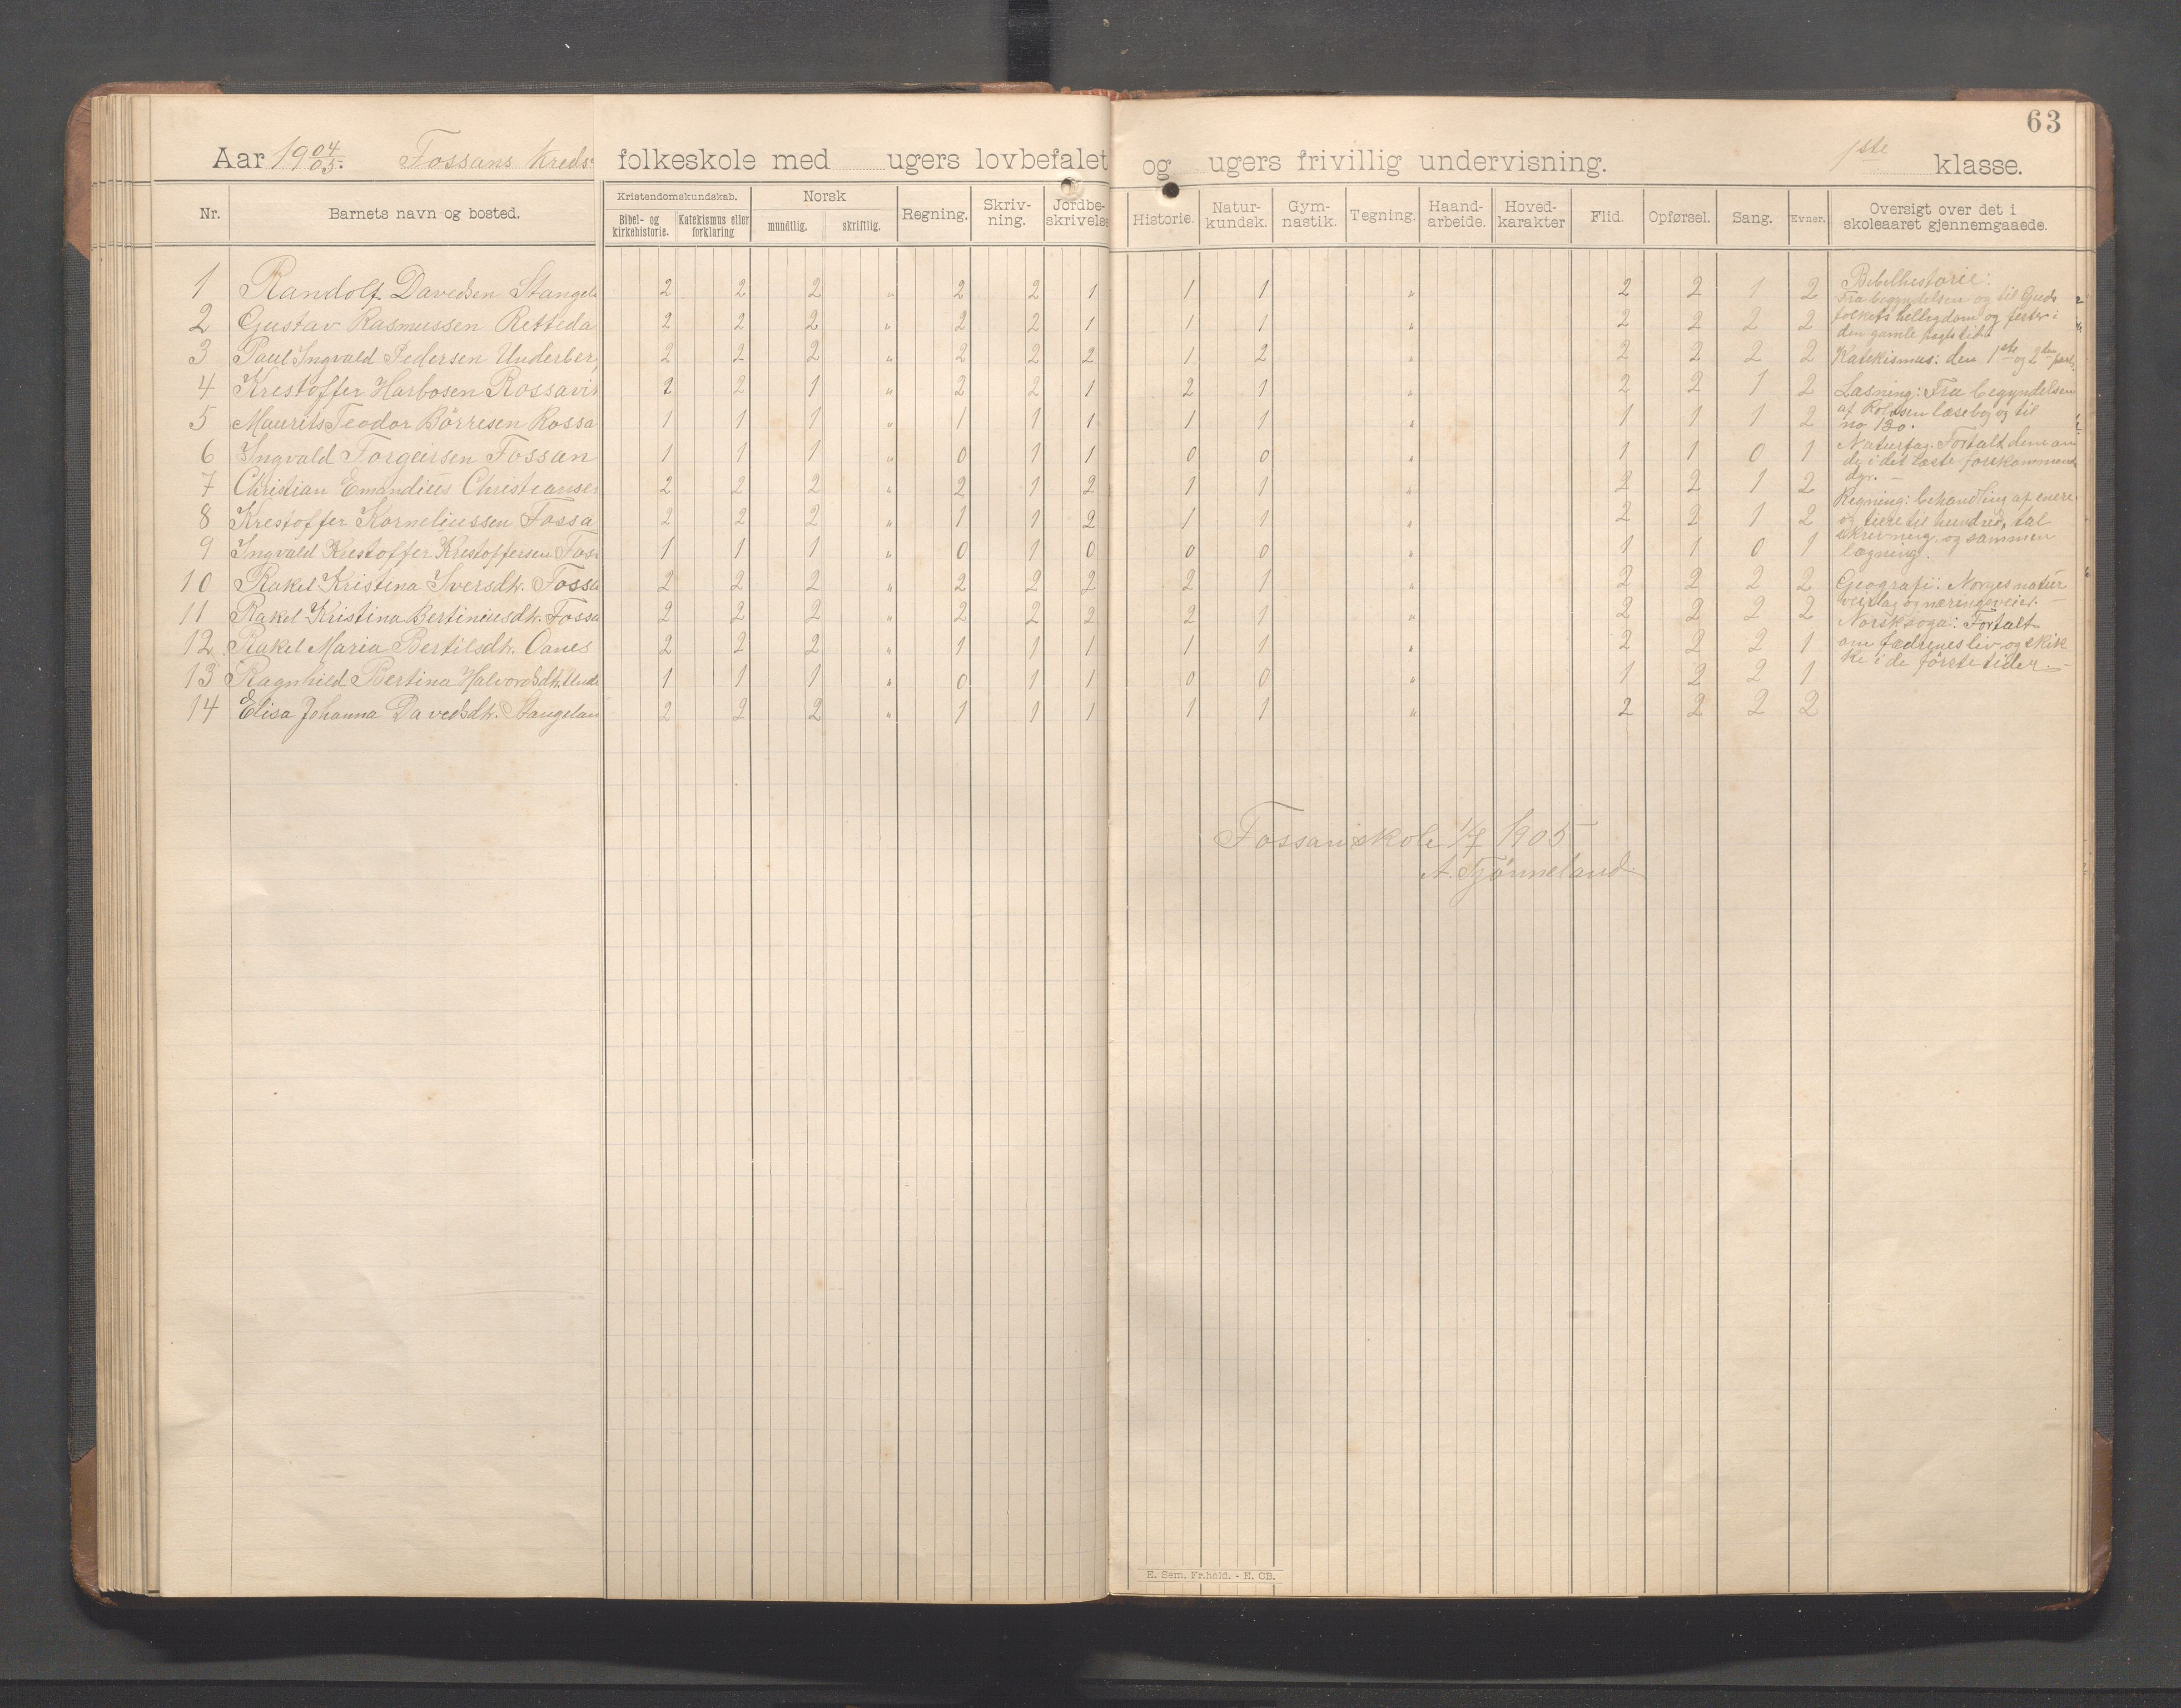 63
Aar 1904/05. Fossans Kreds folkeskole med ugers lovbefalet og ugers frivillig undervisning. 1ste klasse.
Nr. Barnets navn og bosted. Kristendomskundskab. Bibel- og kirkehistorie. Katekismus eller forklaring Norsk mundtlig. skriftlig. Regning. Skriv-ning. Jordbe-skrivelse Historie. Natur-kundsk. Gym-nastik. Tegning. Haand-arbeide. Hoved-karakter Flid. Opførsel. Sang. Evner. Oversigt over det i skoleaaret gjennemgaaede.
1 Randolf Davedsen Stangel 2 2 2 " 2 2 1 1 1 " 2 2 1 2
2 Gustav Rasmussen Retteda 2 2 2 " 2 2 1 1 1 " 2 2 2 2
3 Paul Ingvald Pedersen Underber 2 2 2 " 2 2 2 1 2 " 2 2 2 2
4 Krestoffer Harbosen Rossavi 2 2 1 " 2 2 1 2 1 " 2 2 1 2
5 Maurits Teodor Börresen Rossa 1 1 1 " 1 1 1 1 1 " 1 1 1 2
6 Ingvald Torgeirsen Fossan 1 1 1 " 0 1 1 0 0 " 1 1 0 1
7 Christian Emandius Christiansen 2 2 2 " 2 1 2 1 1 " 2 2 1 2
8 Krestoffer Korneliussen Fossa 2 2 2 " 1 1 2 1 1 " 2 2 1 2
9 Ingvald Krestoffer Krestoffersen Foss 1 1 1 " 0 1 0 0 0 " 1 1 0 1
10 Rakel Kristina Iversdtr. Fossa 2 2 2 " 2 2 2 2 1 " 2 2 2 2
11 Rakel Kristina Bertiniusdtr. Fossa 2 2 2 " 2 2 2 2 1 " 2 2 2 2
12 Rakel Maria Bertilsdtr. Oanes 2 2 2 " 1 1 1 1 1 " 2 2 2 1
13 Ragnhild Bertina Halvorsdtr. Unde 1 1 1 " 0 1 1 0 0 " 1 2 2 1
14 Elisa Johanna Davedsdtr. Stangelan 2 2 2 " 1 1 1 1 1 " 2 2 2 2
Bibelhistorie:
Fra begyndelsen og til Guds
folkets helligdom og fester i
den gamle pagts tid.
Katekismus: den 1ste og 2den part.
Læsning: Fra begyndelsen
af Rolfsen læsebog til
no 130.
Naturfag: Fortalt dem om
de i det læste forekommende
dyr. -
Regning: behandling af enere
og tiere til hundred, tal
skrivning, og sammen
lægning.
Geografi: Norges natur
veirlag og næringsveier.
Norsksoga: Fortalt
om fædrenes liv og skik
ke i de første tider. -
Fossan skole 1/7 1905
A. Tjönneland.
E. Sem. Fr.hald. - E. CB.